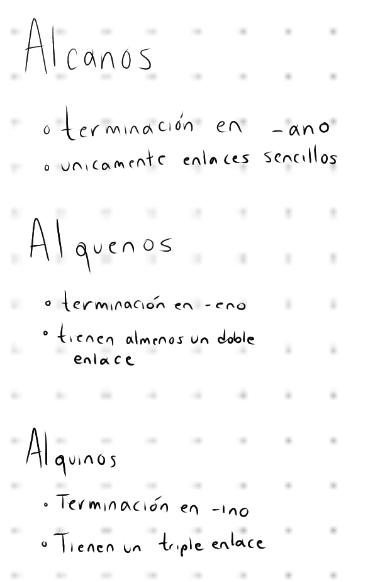 Alcanos
• terminación en -ano
• unicamente enlaces sencillos
Alquenos
• terminación en -eno
• tienen almenos un doble
enlace
Alquinos
• Terminación en -ino
• Tienen un triple enlace